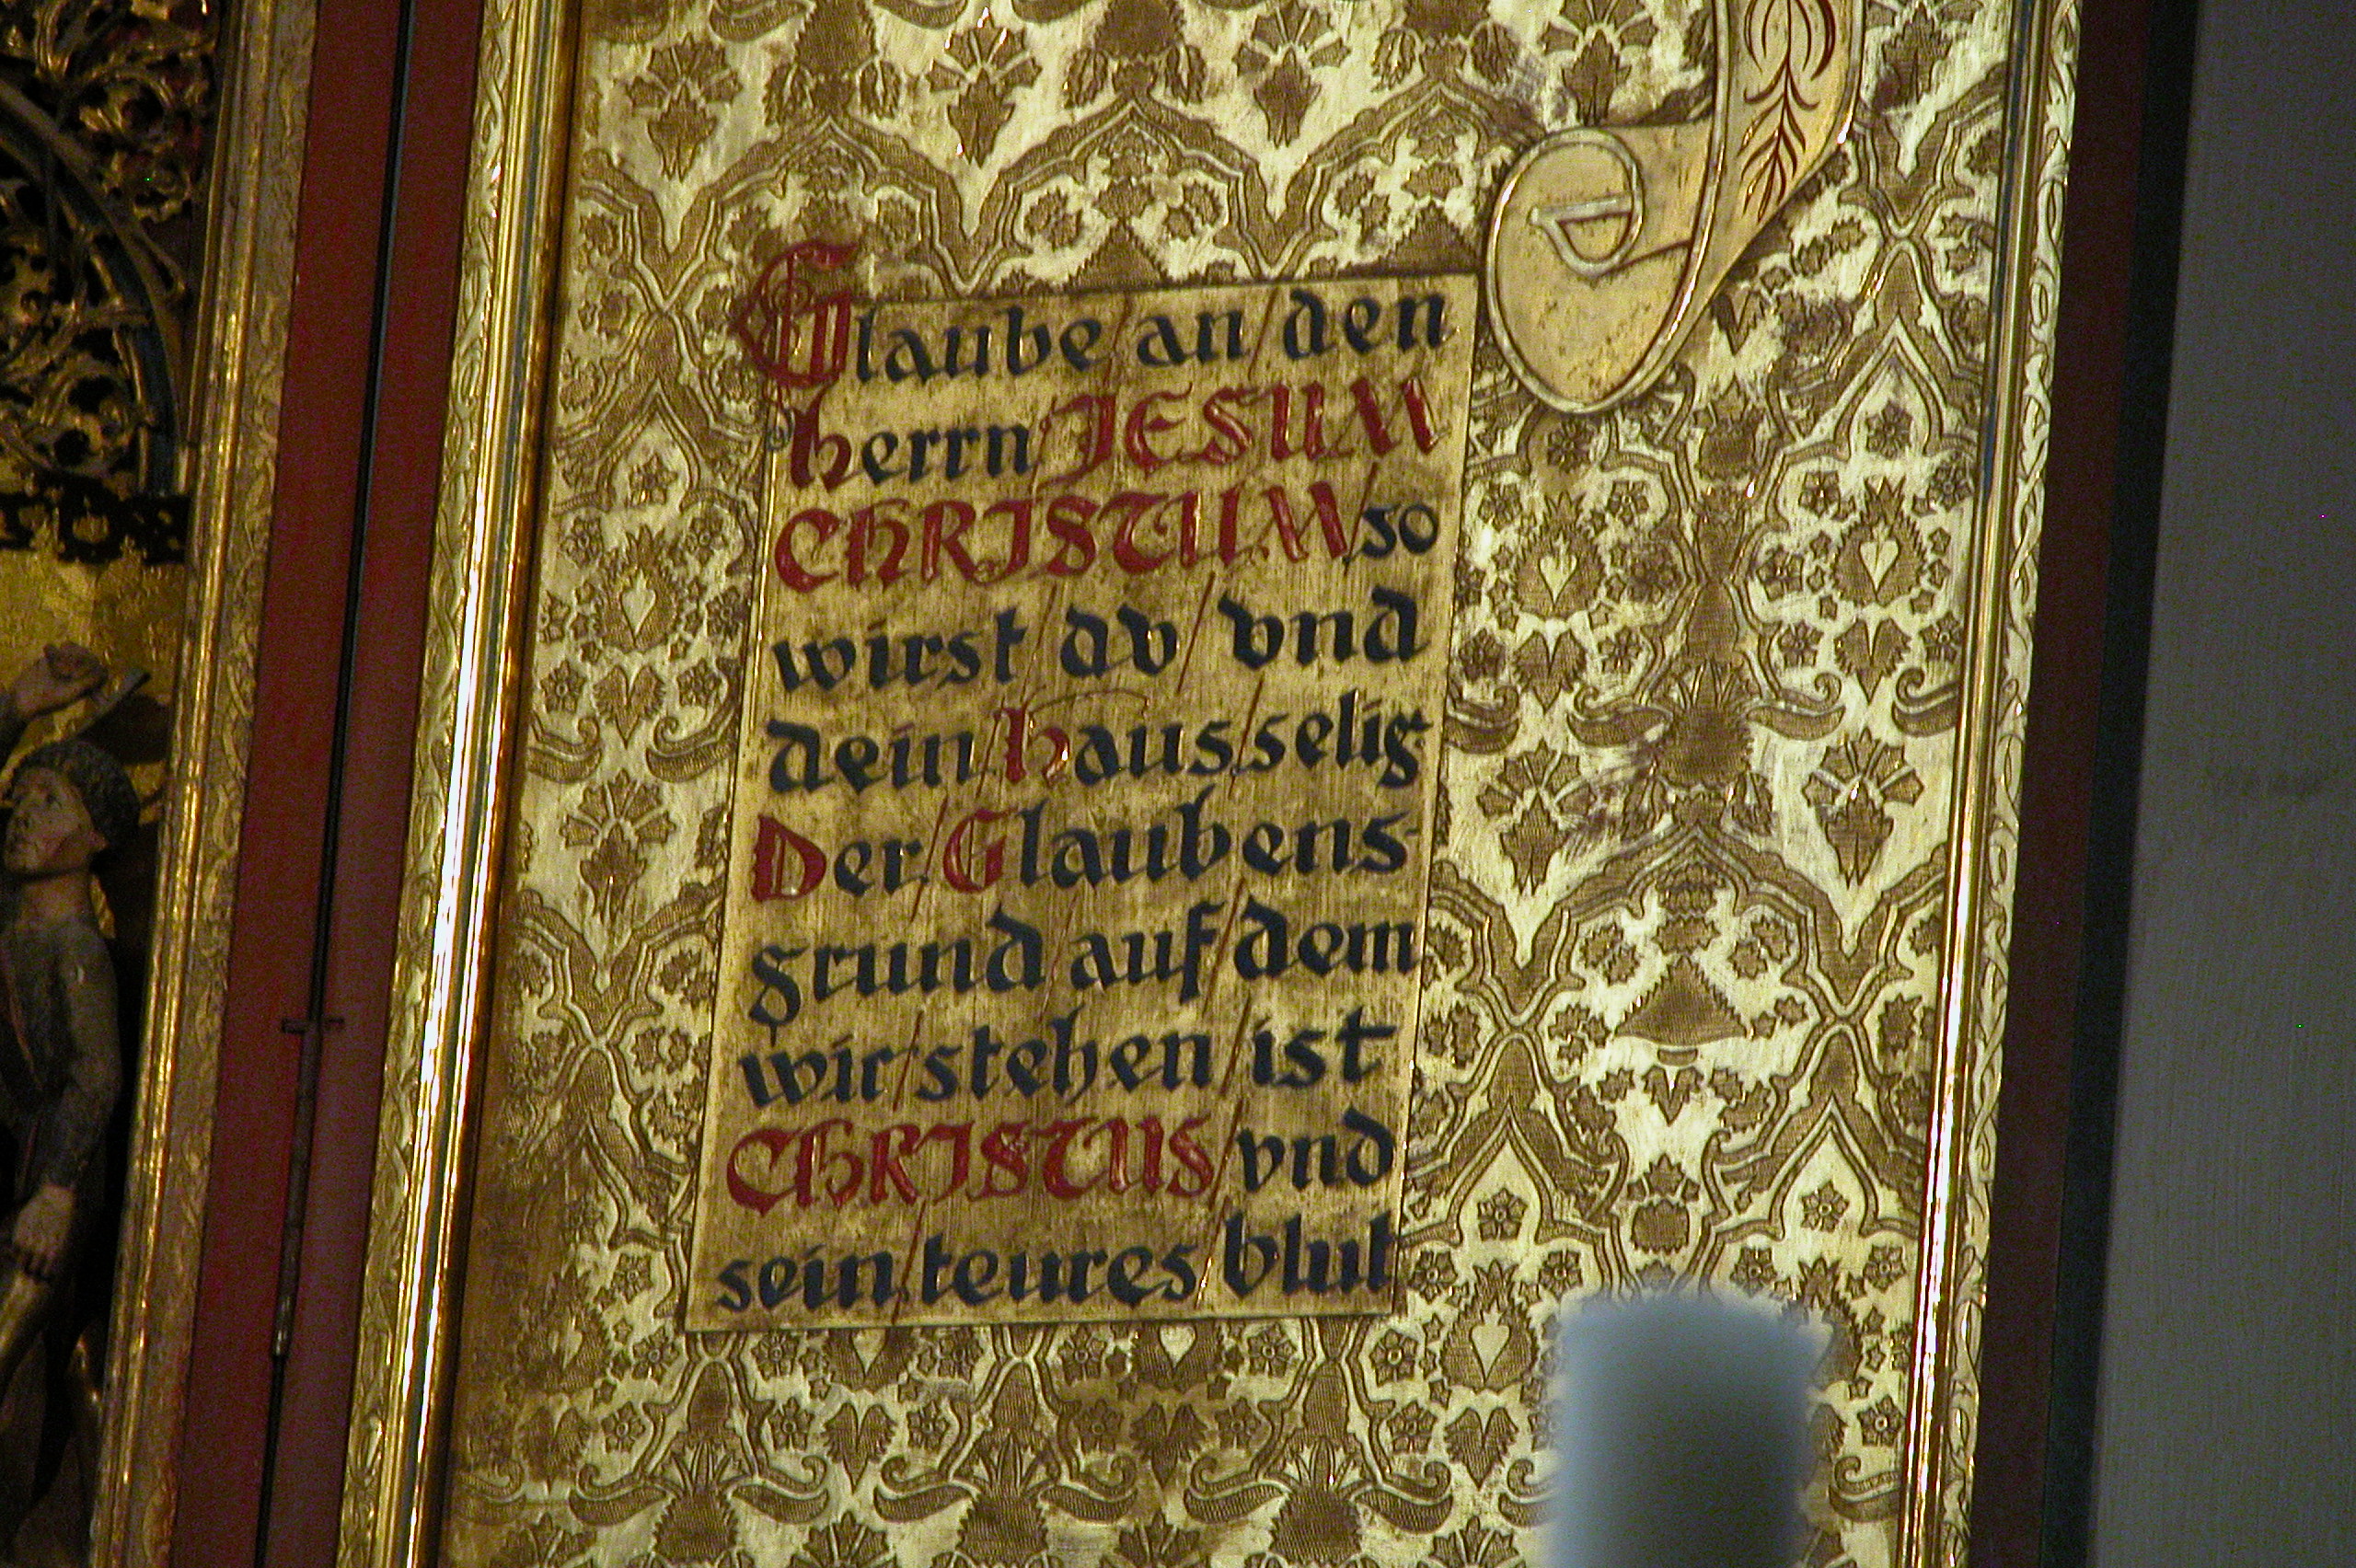 Glaube an den
herrn JESUM
CHRISTUM so
wirst dv vnd
dein haus selig
Der Glaubens
grund auf dem
wir stehen ist
CHRISTUS vnd
sein teures blut